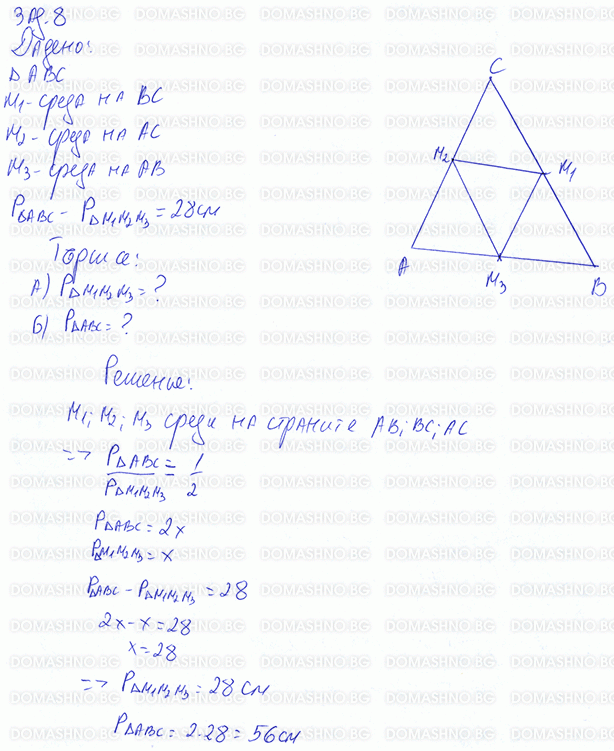 Зад. 8
Дадено:
Δ ABC
M1 - среда на BC
M2 - среда на AC
M3 - среда на AB
PΔABC - PΔM1M2M3 = 28 см
Търси се:
А) PΔM1M2M3 = ?
Б) PΔABC = ?
Решение:
M1; M2; M3 среди на страните AB; BC; AC
=> PΔABC / PΔM1M2M3 = 1 / 2
PΔABC = 2x
PΔM1M2M3 = x
PΔABC - PΔM1M2M3 = 28
2x - x = 28
x = 28
=> PΔM1M2M3 = 28 см
PΔABC = 2.28 = 56 см
C
M2
M1
A
M3
B
DOMASHNO.BG